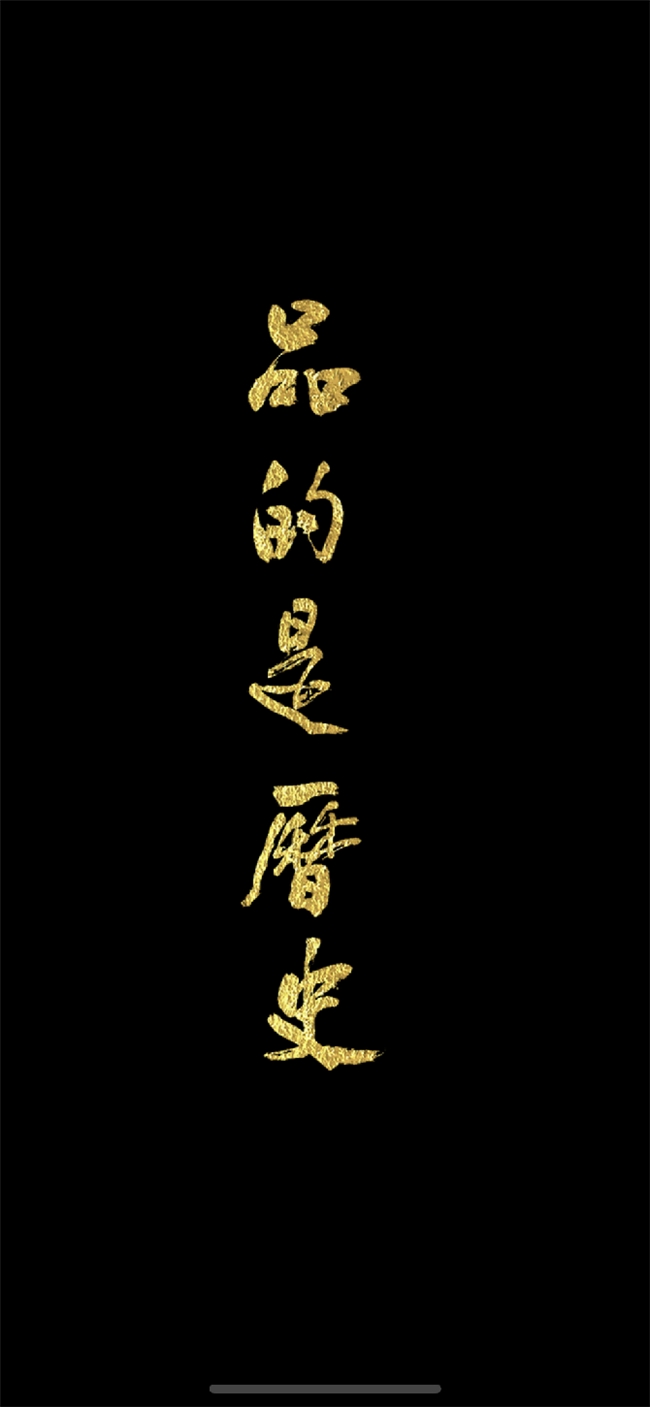 品的是曆史